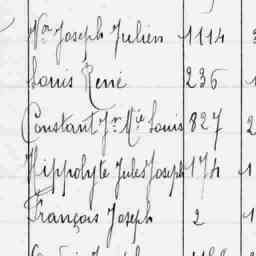 Vor Joseph Julien 1114
Louis René 236 1
Constant Jn Mie Louis 827 2
Hippolyte Jules Joseph 174 1
François Joseph 2 1